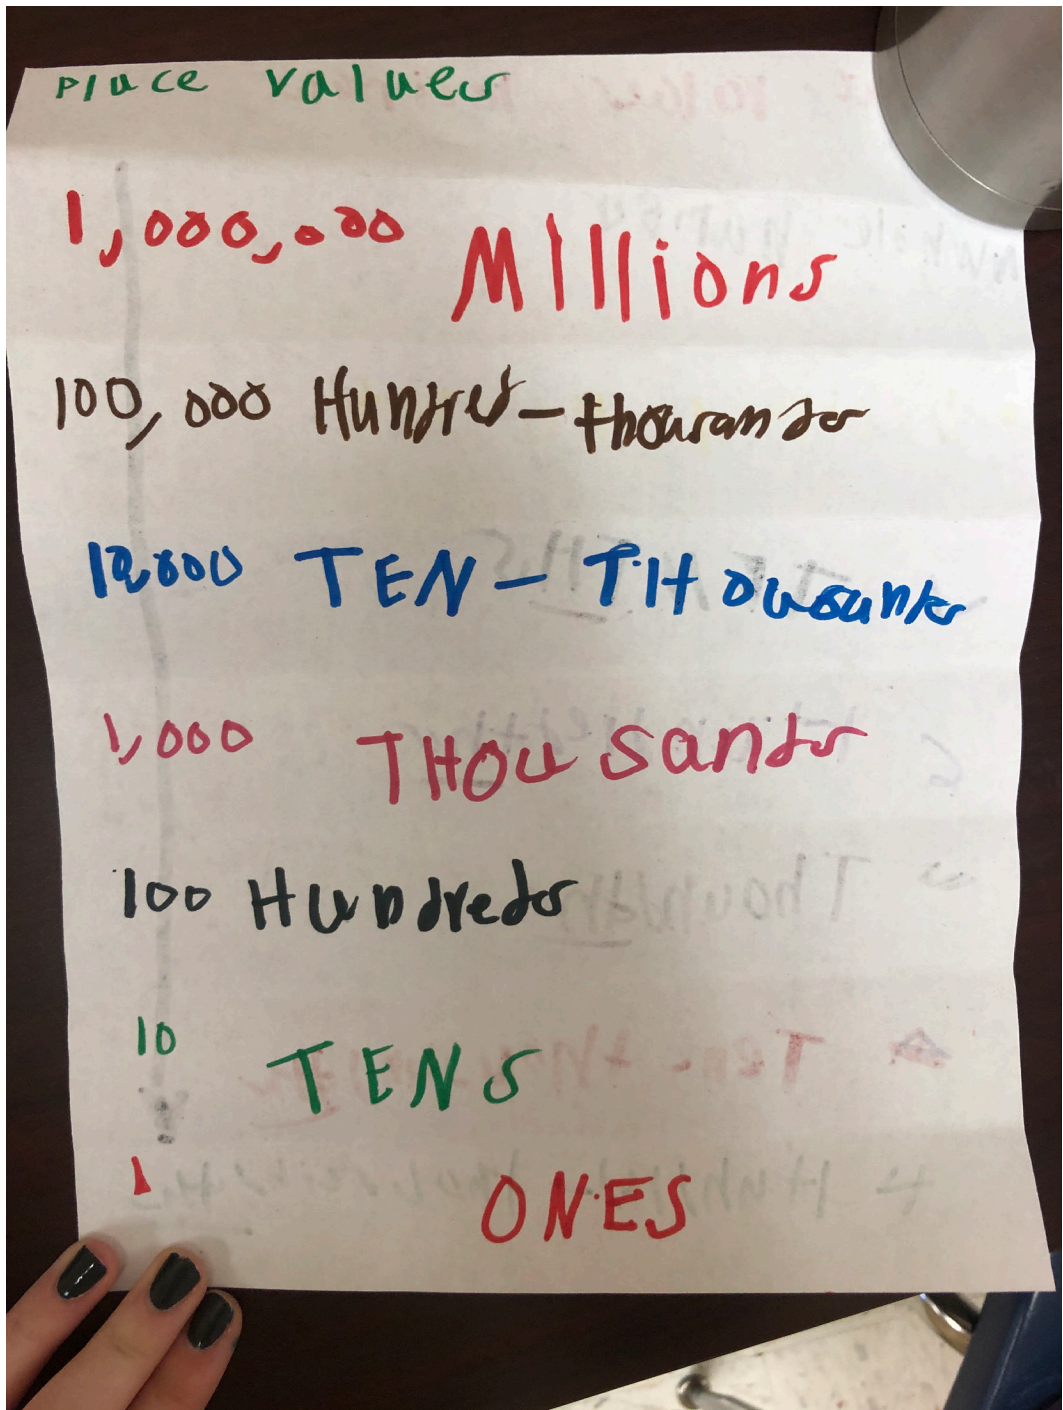 Place Values
1,000,000 Millions
100,000 Hundred-thousands
10,000 TEN-THousands
1,000 THOUsands
100 Hundreds
10 TENS
1 ONES